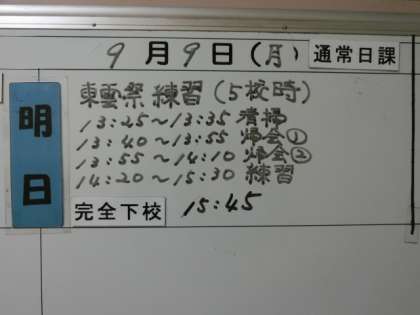 9月9日(月) 通常日課
明日
東雲祭練習(5校時)
13:25~13:35 清掃
13:40~13:55 帰会①
13:55~14:10 帰会②
14:20~15:30 練習
完全下校 15:45